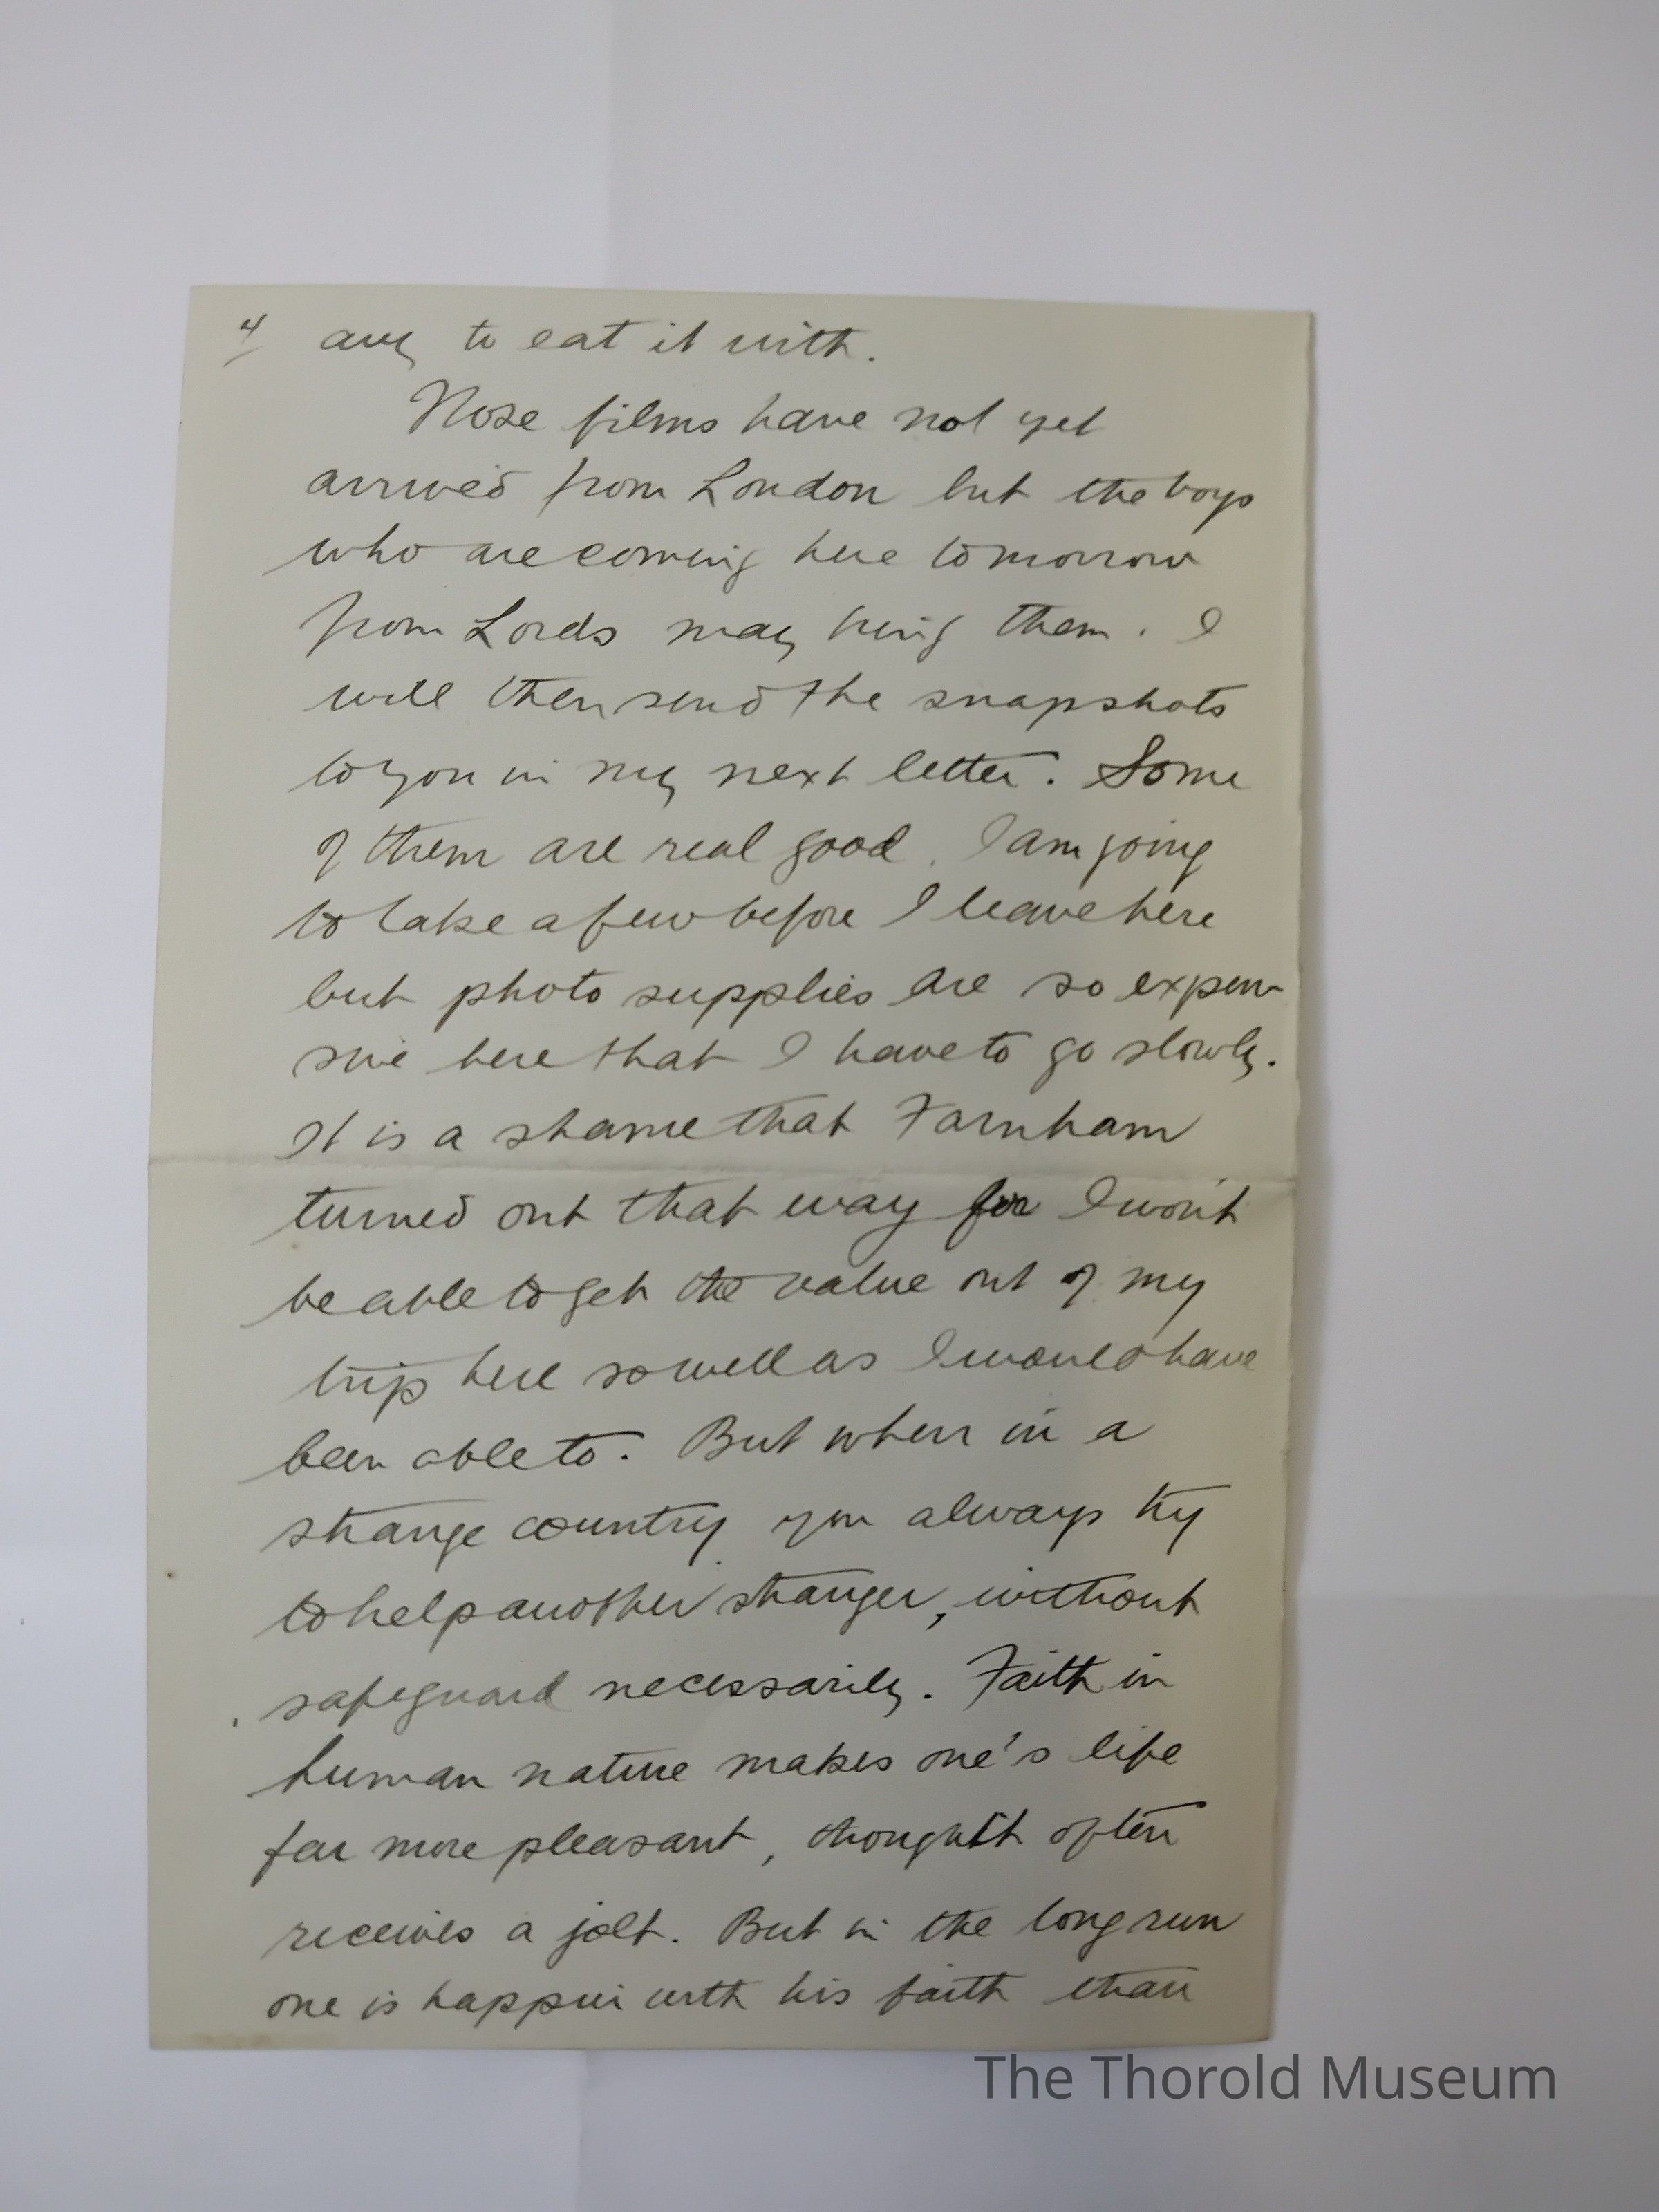 4/ any to eat it with.
Those films have not yet
arrived from London but the boys
who are coming here tomorrow
from Lords may bring them. I
will then send the snapshots
to you in my next letter. Some
of them are real good. I am going
to take a few before I leave here
but photo supplies are so expen-
sive here that I have to go slowly.
It is a shame that Farnham
turned out that way for I won't
be able to get the value out of my
trip here so well as I would have
been able to. But when in a
strange country you always try
to help another stranger, without
safeguard necessarily. Faith in
human nature makes one's life
far more pleasant, though it often
receives a jolt. But in the long run
one is happier with his faith than
The Thorold Museum